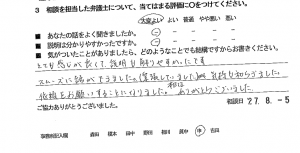 3 相談を担当した弁護士について、当てはまる評価に○をつけてください。
大変よい よい 普通 やや悪い 悪い
■ あなたの話をよく聞きましたか。
■ 説明は分かりやすかったですか。
■ 気がついたことがありましたら、どのようなことでも結構ですからお書きください。
とても感じが良くて、説明も解りやすかったです
スムーズに話ができました。(緊張していましたが)気持も和らぎました。
依頼をお願いすることになりました。ありがとうございました。
ご協力ありがとうございました。
相談日 27. 8. -5
事務所記入欄 森田 榎本 田中